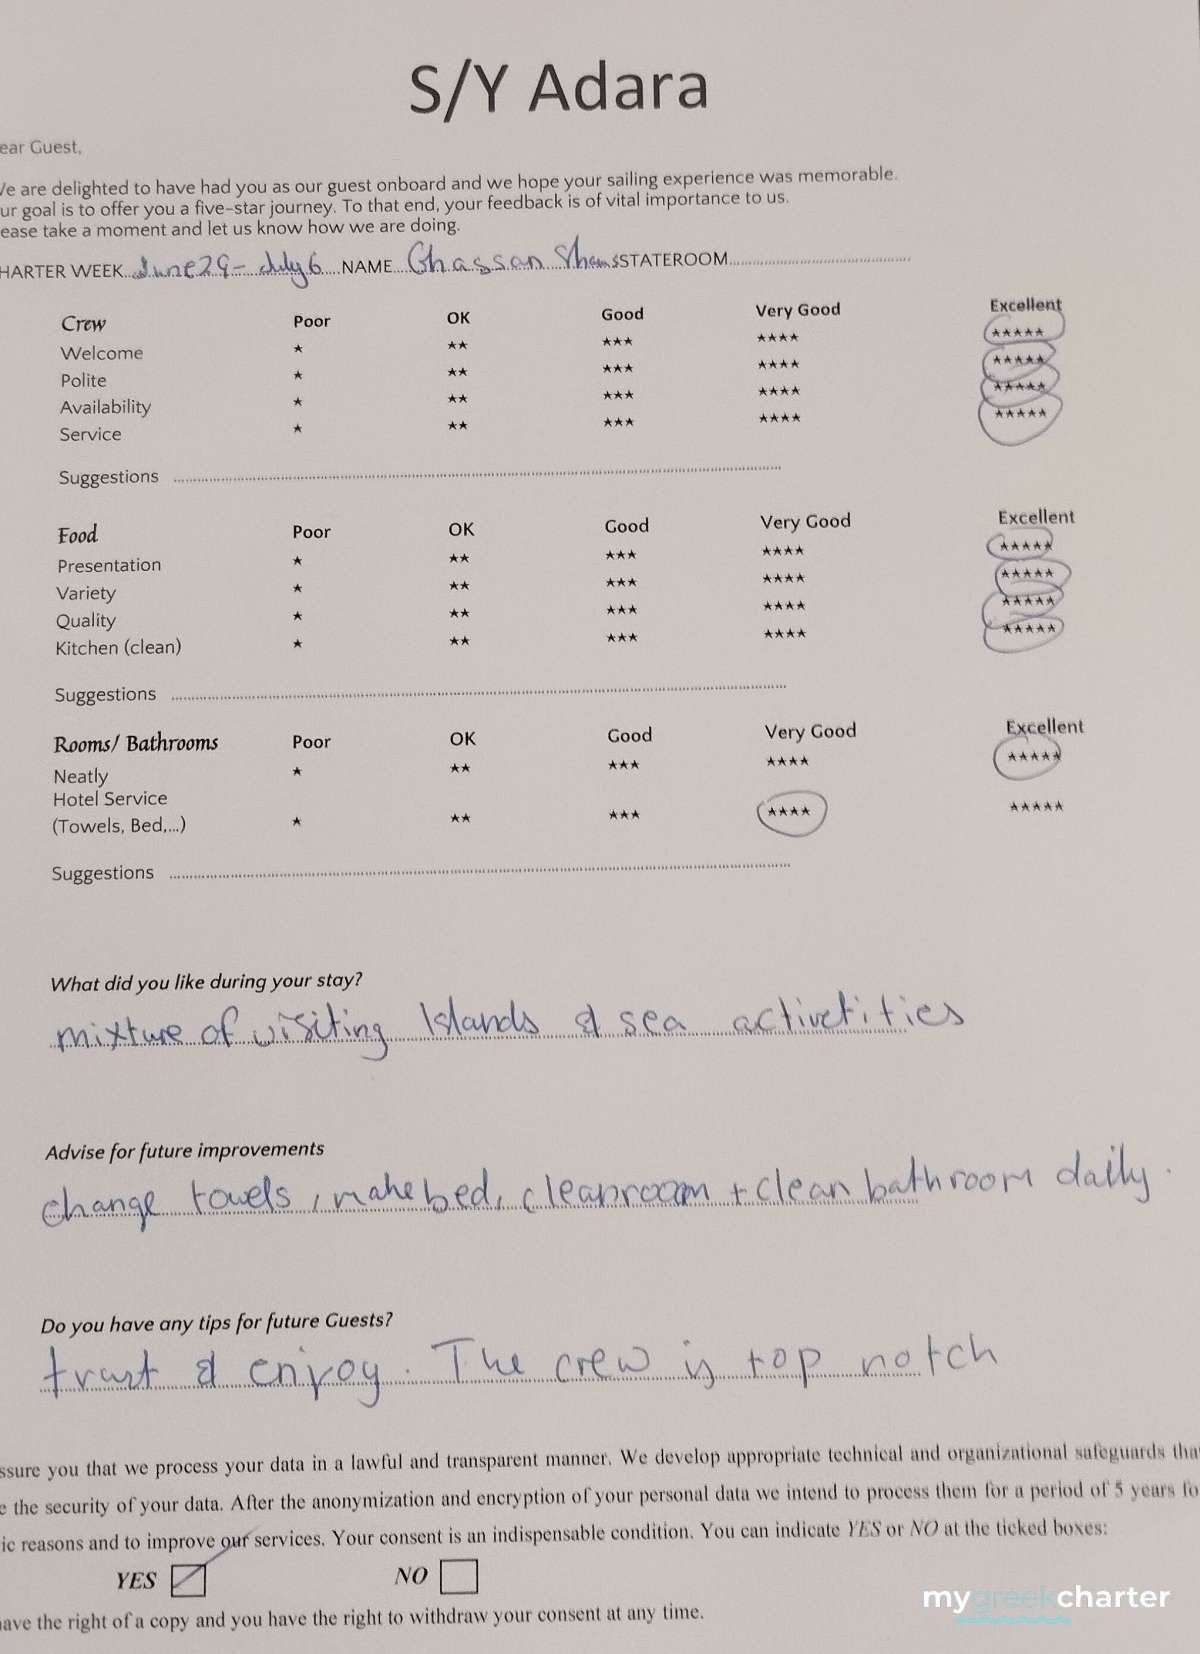 S/Y Adara
ear Guest,
We are delighted to have had you as our guest onboard and we hope your sailing experience was memorable.
ur goal is to offer you a five-star journey. To that end, your feedback is of vital importance to us.
ease take a moment and let us know how we are doing.
HARTER WEEK June 29 - July 6 NAME Ghassan Shams STATEROOM
Crew Poor OK Good Very Good Excellent
Welcome ★ ★★ ★★★ ★★★★ ★★★★★
Polite ★ ★★ ★★★ ★★★★ ★★★★★
Availability ★ ★★ ★★★ ★★★★ ★★★★★
Service ★ ★★ ★★★ ★★★★ ★★★★★
Suggestions
Food Poor OK Good Very Good Excellent
Presentation ★ ★★ ★★★ ★★★★ ★★★★★
Variety ★ ★★ ★★★ ★★★★ ★★★★★
Quality ★ ★★ ★★★ ★★★★ ★★★★★
Kitchen (clean) ★ ★★ ★★★ ★★★★ ★★★★★
Suggestions
Rooms/ Bathrooms Poor OK Good Very Good Excellent
Neatly ★ ★★ ★★★ ★★★★ ★★★★★
Hotel Service
(Towels, Bed,...) ★ ★★ ★★★ ★★★★ ★★★★★
Suggestions
What did you like during your stay?
mixture of visiting Islands & sea activetities
Advise for future improvements
change towels, make bed, clean room + clean bathroom daily.
Do you have any tips for future Guests?
trust & enjoy. The crew is top notch
ssure you that we process your data in a lawful and transparent manner. We develop appropriate technical and organizational safeguards tha
e the security of your data. After the anonymization and encryption of your personal data we intend to process them for a period of 5 years fo
ic reasons and to improve our services. Your consent is an indispensable condition. You can indicate YES or NO at the ticked boxes:
YES NO
ave the right of a copy and you have the right to withdraw your consent at any time.
mygreekcharter